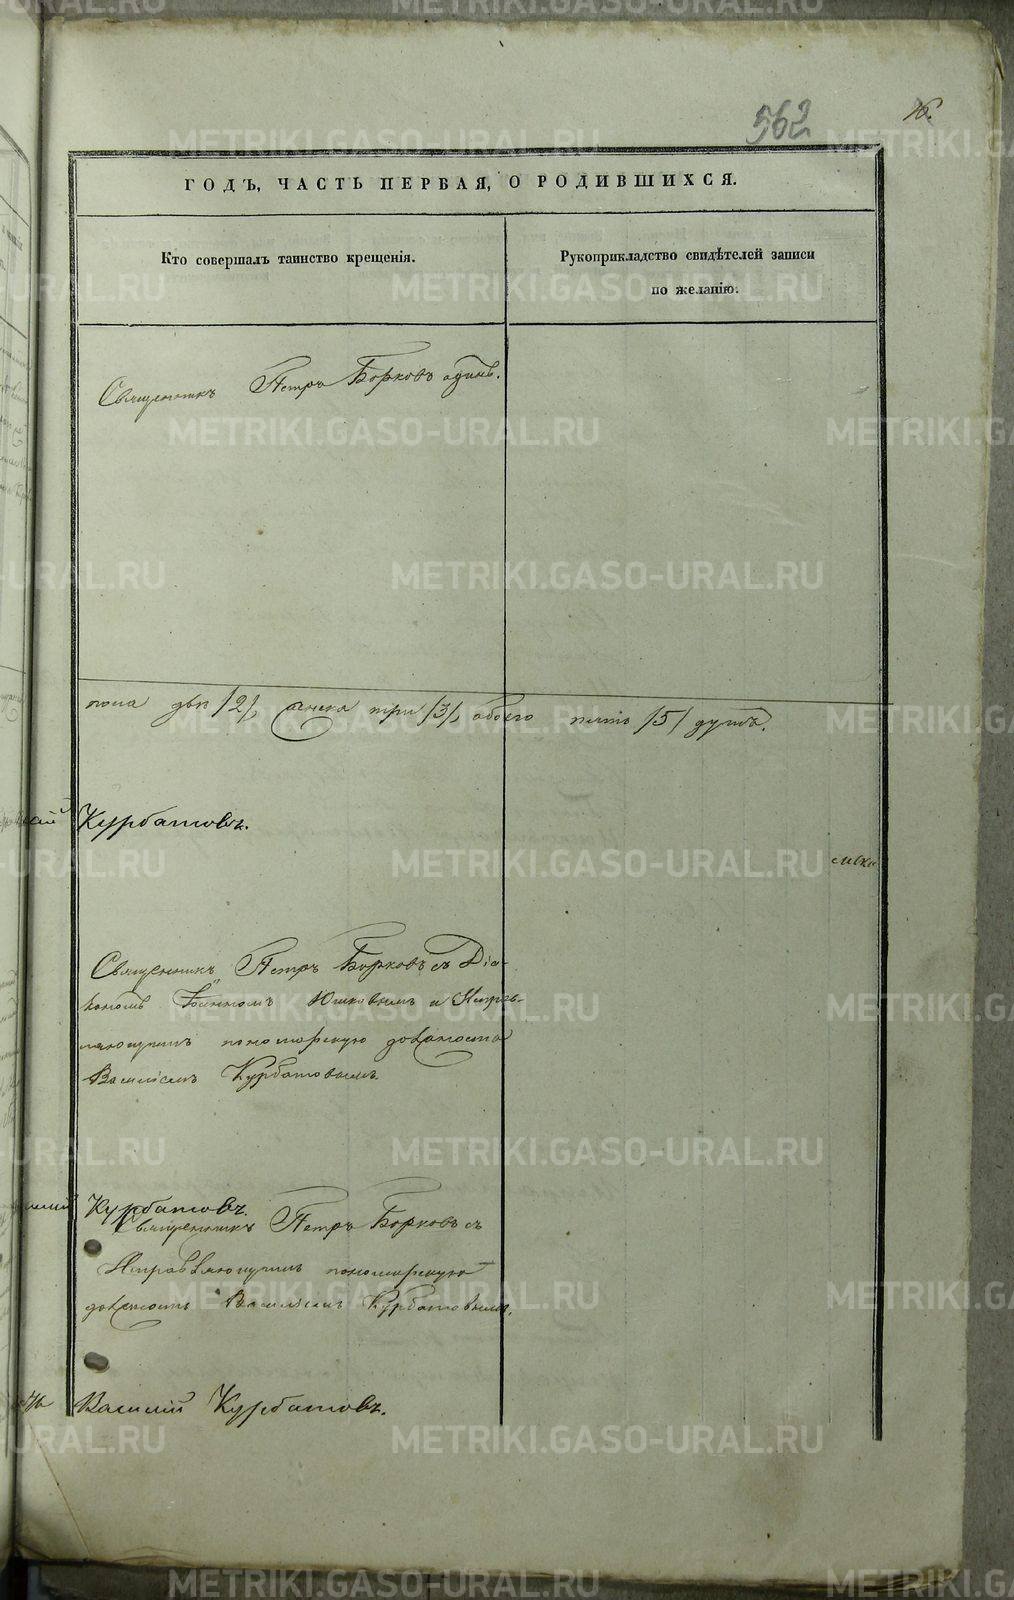 562 16.
ГОДЪ, ЧАСТЬ ПЕРВАЯ, О РОДИВШИХСЯ.
Кто совершалъ таинство крещенія.
Рукоприкладство свидѣтелей записи
по желанію.
Священникъ Петръ Борковъ одинъ.
пола два /2/, женска три /3/, обоего пять /5/ душъ.
Курбатовъ.
Священникъ Петръ Борковъ съ Діа-
кономъ Іоанномъ Юшковымъ и Исправ-
ляющимъ пономарскую должность
Василіемъ Курбатовымъ.
Курбатовъ.
Священникъ Петръ Борковъ съ
Исправляющимъ пономарскую
должность Василіемъ Курбатовымъ.
Василій Курбатовъ.
METRIKI.GASO-URAL.RU